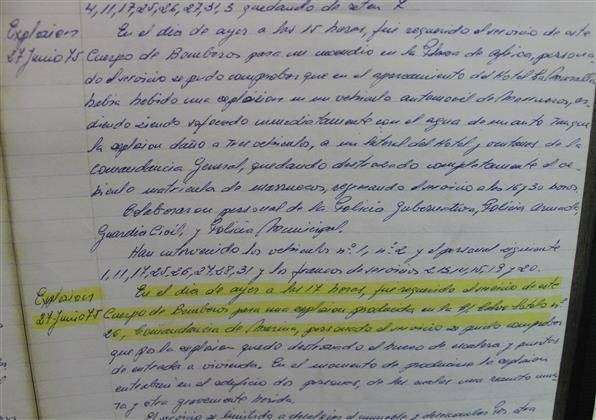 4, 11, 17, 25, 26, 27, 31, 3 quedando de reten 2
Explosion En el dia de ayer a las 15 horas, fue requerido el servicio de este
27 Junio 75 Cuerpo de Bomberos para un incendio en la Plaza de Africa, persona-
do el servicio se pudo comprobar que en el aparcamiento del Hotel La Muralla
habia habido una explosion en un vehiculo automovil de Marruecos, ar-
diendo siendo sofocado inmediatamente con el agua de un auto tanque
la explosion daño a tres vehiculos, a un lateral del Hotel, ventanas de la
Comandancia General, quedando destrozado completamente el ve-
hiculo matricula de marruecos, regresando el servicio a las 16 y 30 horas.
Colaboraron personal de la Policia Gubernativa, Policia Armada,
Guardia Civil, y Policia Municipal.
Han intervenido los vehiculos nº 1, nº 2 y el personal siguiente
1, 11, 17, 25, 26, 27, 28, 31 y los francos de servicios y 20.
Explosion En el dia de ayer a las 17 horas, fue requerido el servicio de este
27 Junio 75 Cuerpo de Bomberos para una explosion producida en la nº
26, Comandancia de Marina, personado el servicio se pudo comprobar
que por la explosion quedo destrozado el hueco de escalera y puertas
de entrada a vivienda. En el momento de producirse la explosion
entraban en el edificio dos personas, de las cuales una resulto muer-
ta y otra gravemente herida.
El servicio se limitado a y